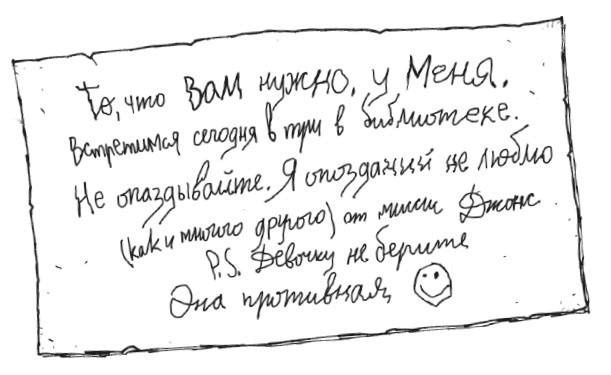 То, что Вам нужно, у Меня.
Встретимся сегодня в три в библиотеке.
Не опаздывайте. Я опозданий не люблю
(как и многого другого) от мисси Джонс
P.S. Девочку не берите
Она противная